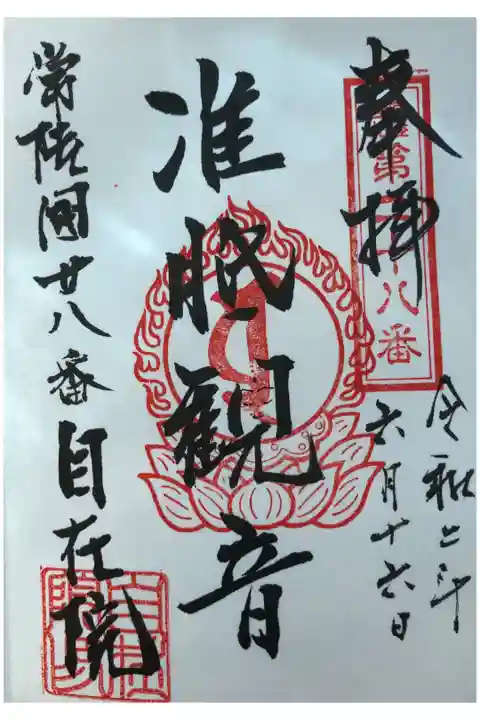 奉拝
第二十八番
令和二年
六月十六日
准胝観音
常陸國廿八番 自在院
自在院印